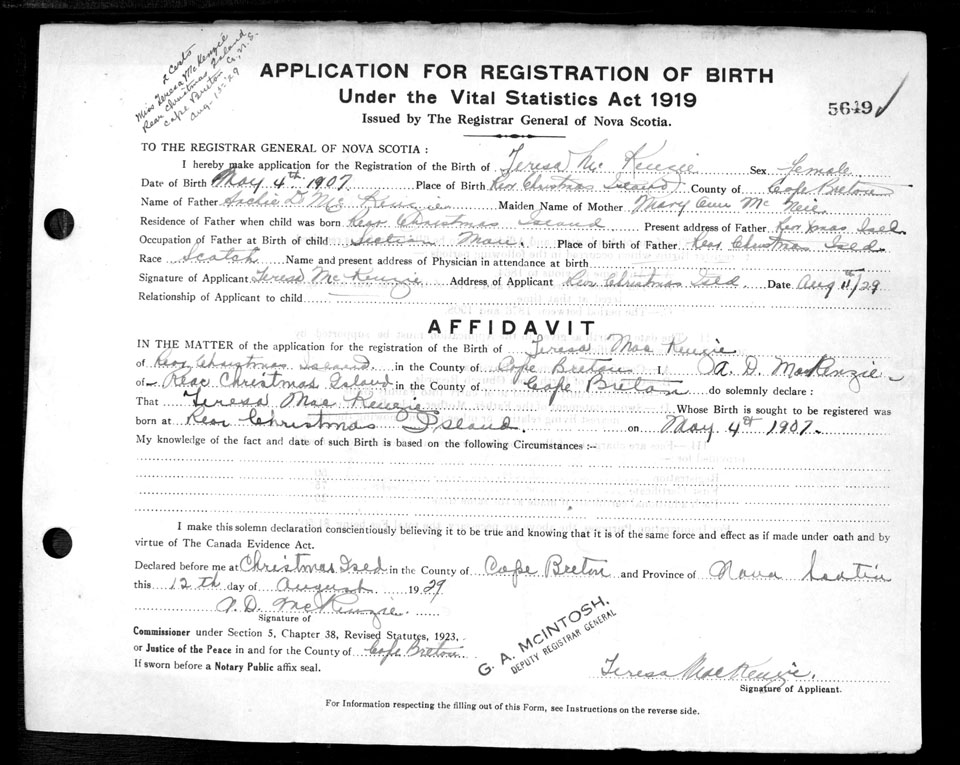 2 Certs
Miss Teresa McKenzie
Rear Christmas Island
Cape Breton Co. N.S.
Aug. 13 '29
APPLICATION FOR REGISTRATION OF BIRTH
Under the Vital Statistics Act 1919
5649
Issued by The Registrar General of Nova Scotia.
TO THE REGISTRAR GENERAL OF NOVA SCOTIA :
I hereby make application for the Registration of the Birth of Teresa Mc Kenzie Sex Female
Date of Birth May 4th 1907 Place of Birth Rear Christmas Island County of Cape Breton
Name of Father Archie D. Mc Kenzie Maiden Name of Mother Mary Ann Mc Neil
Residence of Father when child was born Rear Christmas Island Present address of Father Rear Xmas Isld.
Occupation of Father at Birth of child Section Man. Place of birth of Father Rear Christmas Isld.
Race Scotch Name and present address of Physician in attendance at birth
Signature of Applicant Teresa McKenzie Address of Applicant Rear Christmas Isld Date Aug 11th/29
Relationship of Applicant to child
AFFIDAVIT
IN THE MATTER of the application for the registration of the Birth of Teresa Mac Kenzie
of Rear Christmas Island. in the County of Cape Breton I A. D. MacKenzie
of Rear Christmas Island in the County of Cape Breton do solemnly declare :
That Teresa Mac Kenzie Whose Birth is sought to be registered was
born at Rear Christmas Island. on May 4th 1907.
My knowledge of the fact and date of such Birth is based on the following Circumstances :-
I make this solemn declaration conscientiously believing it to be true and knowing that it is of the same force and effect as if made under oath and by
virtue of The Canada Evidence Act.
Declared before me at Christmas Isld in the County of Cape Breton and Province of Nova Scotia
this 12th day of August 1929
A. D. McKenzie.
Signature of
Commissioner under Section 5, Chapter 38, Revised Statutes, 1923,
or Justice of the Peace in and for the County of Cape Breton
If sworn before a Notary Public affix seal.
G. A. McINTOSH,
DEPUTY REGISTRAR GENERAL
Teresa MacKenzie.
Signature of Applicant.
For Information respecting the filling out of this Form, see Instructions on the reverse side.